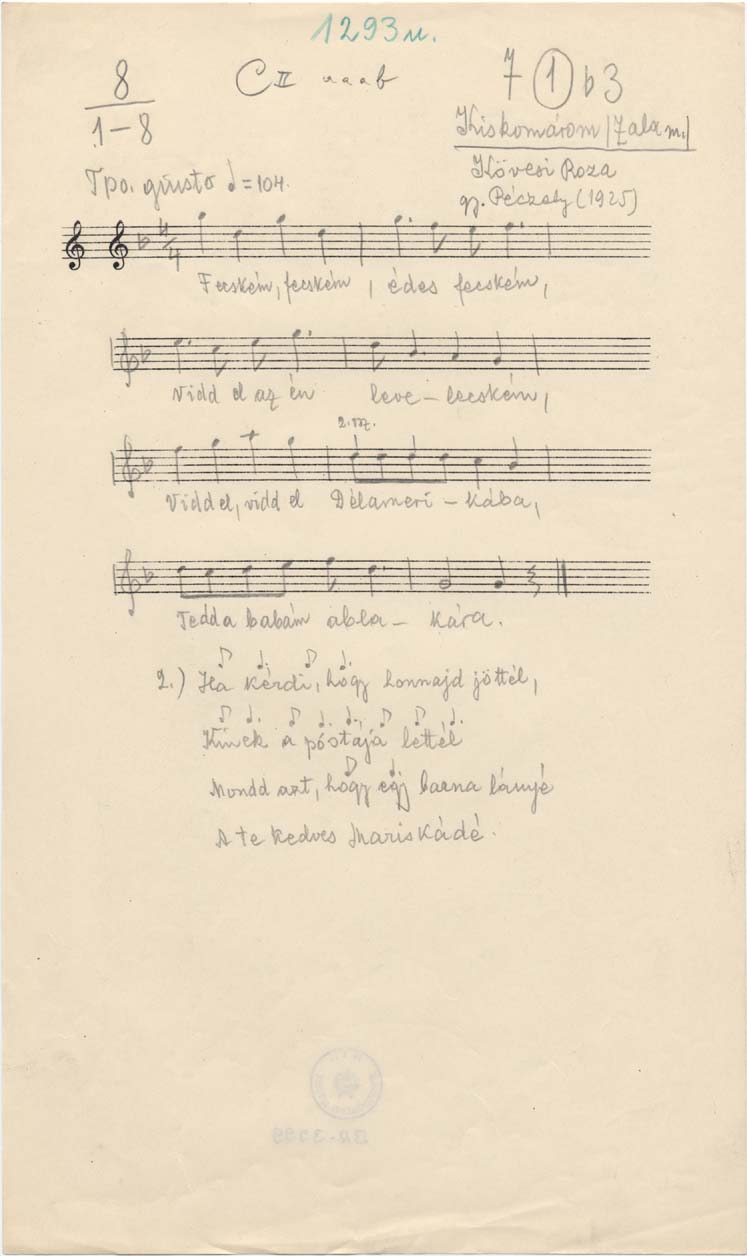 1293u.
8
1-8
C II
7 1 b3
Kiskomárom /Zala m./
Kövesi Roza
gy. Péczely (1925)
Tpo. giusto ♩=104.
4/4
Fecském, fecském, édes fecském,
Vidd el az én leve-lecském,
2. vsz.
Vidd el, vidd el Délameri-kába,
Tedd a babám abla-kára.
2.) Ha kérdi, hogy honnajd jöttél,
Kinek a póstája lettél
Mondd azt, hogy egj barna lányé
A te kedves Mariskádé.